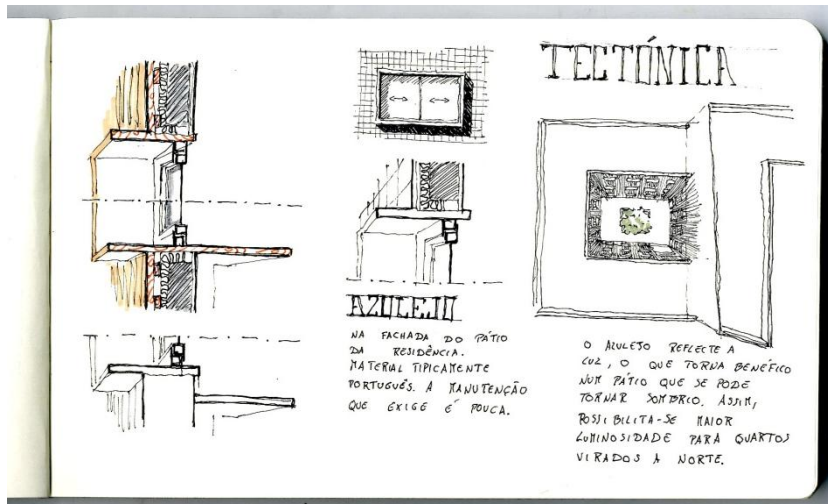 TECTÓNICA
AZULEJO
NA FACHADA DO PÁTIO
DA RESIDÊNCIA.
MATERIAL TIPICAMENTE
PORTUGUÊS. A MANUTENÇÃO
QUE EXIGE É POUCA.
O AZULEJO REFLECTE A
LUZ, O QUE TORNA BENÉFICO
NUM PÁTIO QUE SE PODE
TORNAR SOMBRIO. ASSIM,
POSSIBILITA-SE MAIOR
LUMINOSIDADE PARA QUARTOS
VIRADOS A NORTE.